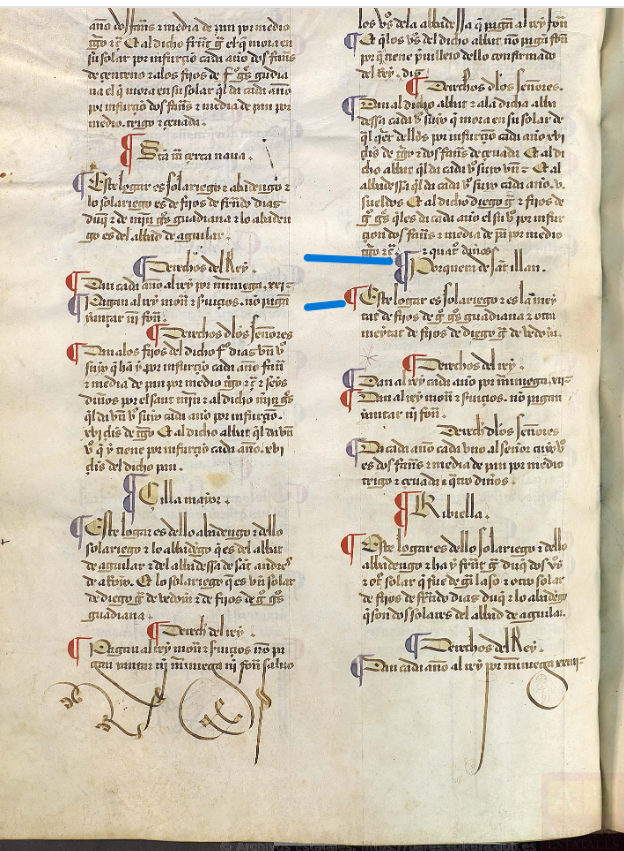 año dos fans τ media de pan por medio
τͣgo τ çͣ Et al dicho frͣnt gͣ el q̃ mora en
su solar por infurçio cada año dos fans
de çenteno τ alos fijos de
na el q̃ mora en su solar q̃l da cada año
por infurçio dos fans τ media de pan por
medio. trigo τ çeuada.
Sctã mͣ çerca naua.
Este logar es solariego τ abidengo τ
lo solariego es de fijos de frͣndo dias
duq̃ τ de guadiana τ lo abaden
go es del abbad de aguilar.
Derechos del Rey.
Dan cada año al rey por mĩniega. xxi
Pagan al rey mon τ seruiçios. nõ pagan
yantar nĩ fon.
Derechos dlos señores
Dan alos fijos del dicho fͦ dias vn vͦ
suyo q̃ ha y por infurçio cada año fans
τ media de pan por medio tͣgo τ çͣ τ seys
dineros por el sant mĩn τ al dicho
q̃l da vn vͦ suyo cada año por infurçio.
xvi çlis de tͣgo Et al dicho abbat q̃l da vn
vͦ q̃ y tiene por infurçio cada año. xvi
çlis del dicho pan.
Çilla mayor.
Este logar es dello abadengo τ dello
solariego τ lo abbadẽgo q̃ es del abbat
de aguilar τ del abbadessa de sant andres
de arroyo. Et lo solariego q̃ es vn solar
de diego gͣ de τ de fijos de gͦ
guadiana.
Derechos del rey.
Pagan al rey mon τ seruiçios nõ pa
gan yantar nĩ mĩniega nĩ fon saluo
los vͦs dela abbadessa q̃ pagan al rey fon
Et q̃ los vͦs del dicho abbat nõ pagan fon
por q̃ tiene preuillejo dello confirmado
del Rey.
Derechos dlos señores.
Dan al dicho abbat τ ala dicha abba
dessa cada vͦ suyo q̃ mora en su solar de
q̃l q̃er dellos por infurçio cada año xvi
çlis de tͣgo τ dos fans de çeuada. Et al di
cho abbat q̃l da cada vͦ suyo Et al
abbadessa q̃l da cada vͦ suyo cada año. v.
sueldos Et al dicho diego gͣ τ fijos de
gͦ q̃ les da cada año el su vͦ por infur
çion dos fans τ media de pã por medio
tͣgo τ çͣ τ quatͦ dineros
Porquera de sant illan.
Este logar es solariego τ es la mey
tat de fijos de gͦ guadiana τ otra
meytat de fijos de diego gͣ de
Derechos del rey.
Dan al rey cada año por mĩniega. xii
Dan al rey mon τ seruiçios. nõ pagan
yantar nĩ fon.
Derechos dlos señores
Da cada año cada vno al señor cuyo vͦ
es dos fans τ media de pan por medio
trigo τ çeuada τ qͣtro dineros.
Ribiella.
Este logar es dello solariego τ dello
abbadengo τ ha y frͣnt gͣ duq̃ dos vͦs
τ otͦ solar q̃ fue de gͣ laso τ otro solar
de fijos de frͣndo dias duq̃ τ lo abadengo
q̃ son dos solares del abbad de aguilar.
Derechos del Rey.
Dan cada año al rey por mĩniega